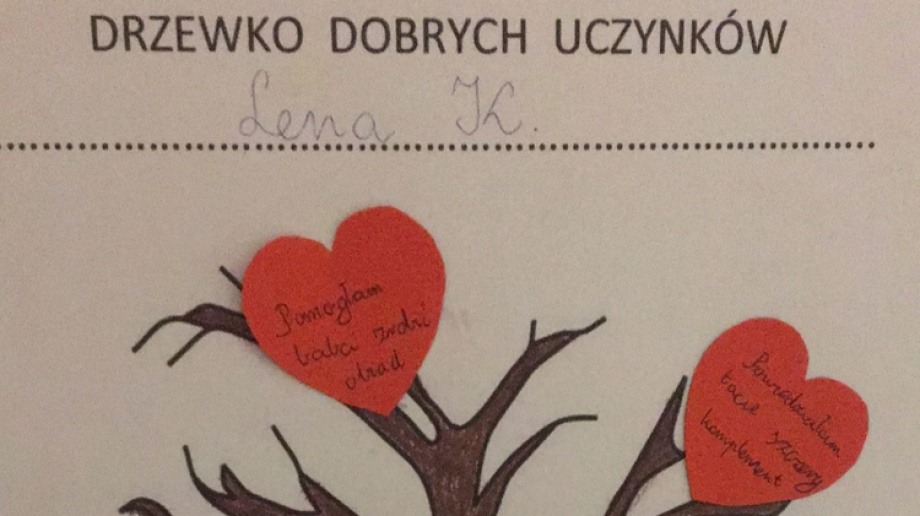 DRZEWKO DOBRYCH UCZYNKÓW
Lena K.
Pomogłam
babci zrobić
obiad
Powiedziałam
tacie szczery
komplement